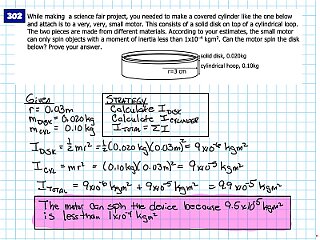 302 While making a science fair project, you needed to make a covered cylinder like the one below
and attach is to a very, very, small motor. This consists of a solid disk on top of a cylindrical loop.
The two pieces are made from different materials. According to your estimates, the small motor
can only spin objects with a moment of inertia less than 1x10⁻⁴ kgm². Can the motor spin the disk
below? Prove your answer.
solid disk, 0.020kg
cylindrical hoop, 0.10kg
r=3 cm
Given
r = 0.03m
m DISK = 0.020kg
m CYL = 0.10kg
STRATEGY
Calculate I DISK
Calculate I CYLINDER
I TOTAL = ΣI
I DISK = ½mr² = ½(0.020kg)(0.03m)² = 9x10⁻⁶ kgm²
I CYL = mr² = (0.10kg)(0.03m)² = 9x10⁻⁵ kgm²
I TOTAL = 9x10⁻⁶ kgm² + 9x10⁻⁵ kgm² = 9.9x10⁻⁵ kgm²
The motor can spin the device because 9.5x10⁻⁵ kgm²
is less than 1x10⁻⁴ kgm²